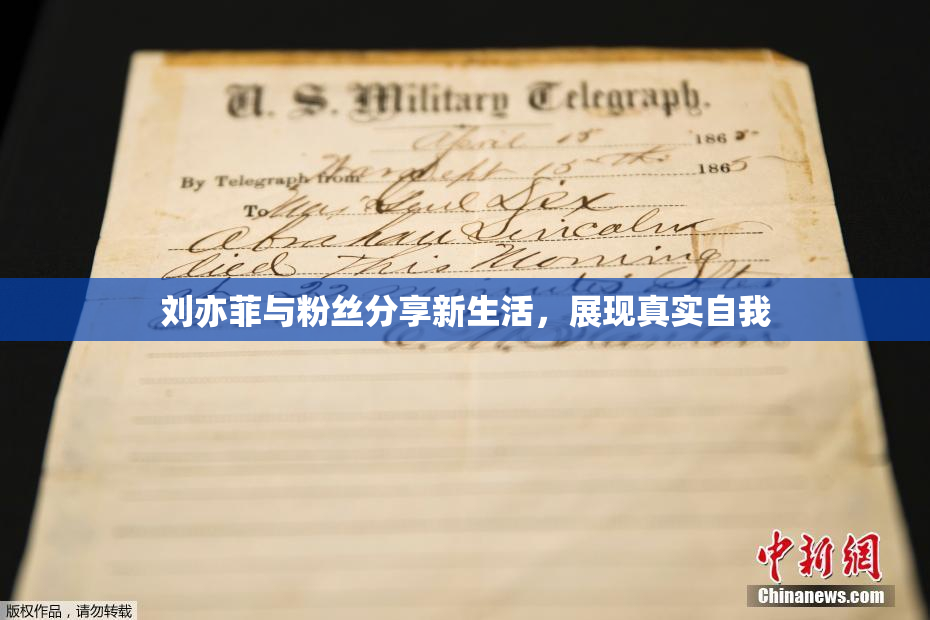 U. S. Military Telegraph.
April 15 1865
By Telegraph from War Dept 15th 1865
To Maj Genl Dix
Abraham Lincoln
died This Morning
at 22 minutes after
刘亦菲与粉丝分享新生活，展现真实自我
E. M. Stanton
中新网
版权作品，请勿转载
Chinanews.com